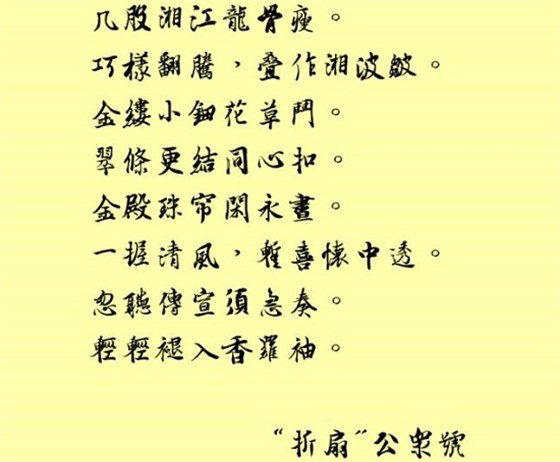 几股湘江龍骨瘦。
巧樣翻騰，疊作湘波皺。
金縷小鈿花草鬥。
翠條更結同心扣。
金殿珠帘閑永晝。
一握清風，暫喜懷中透。
忽聽傳宣須急奏。
輕輕褪入香羅袖。
“折扇”公衆號